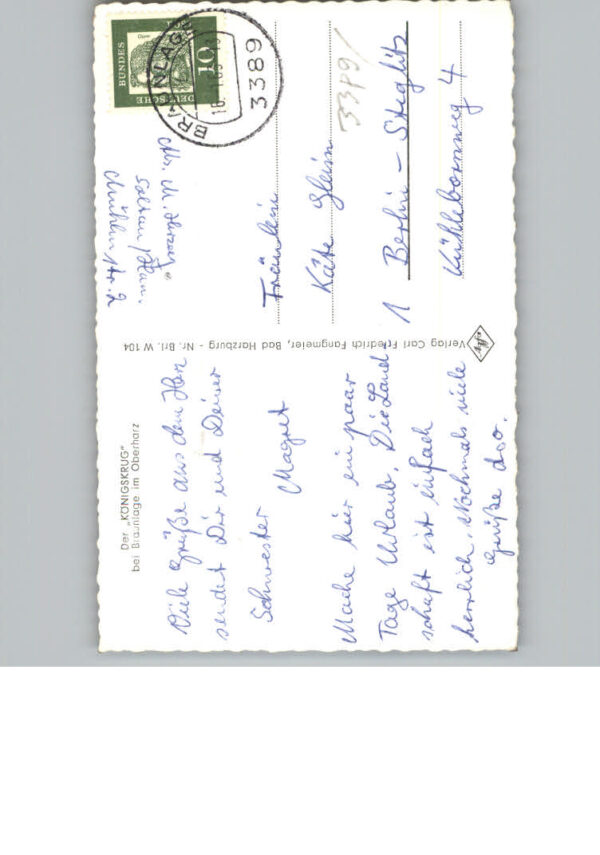 Der „KÖNIGSKRUG"
bei Braunlage im Oberharz
Viele Grüße aus dem Harz
sendet Dir und Deiner
Schwester Magret
Mache hier ein paar
Tage Urlaub. Die Land-
schaft ist einfach
herrlich. Nochmals viele
Grüße d.o.
Verlag Carl Friedrich Fangmeier, Bad Harzburg - Nr. Brl. W 104
Agfa
Abs. M.
Soltau/Hann.
Mühlenstr. 2
DEUTSCHE
BUNDES
10
BRAUNLAGE
3389
3389/
Fräulein
Käte Glein
1 Berlin - Steglitz
Kühlebornweg 4